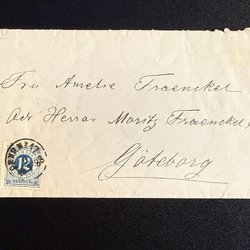 Fru Amelie Fraenckel
Adr Herrar Moritz Fraenckel &
Göteborg
12